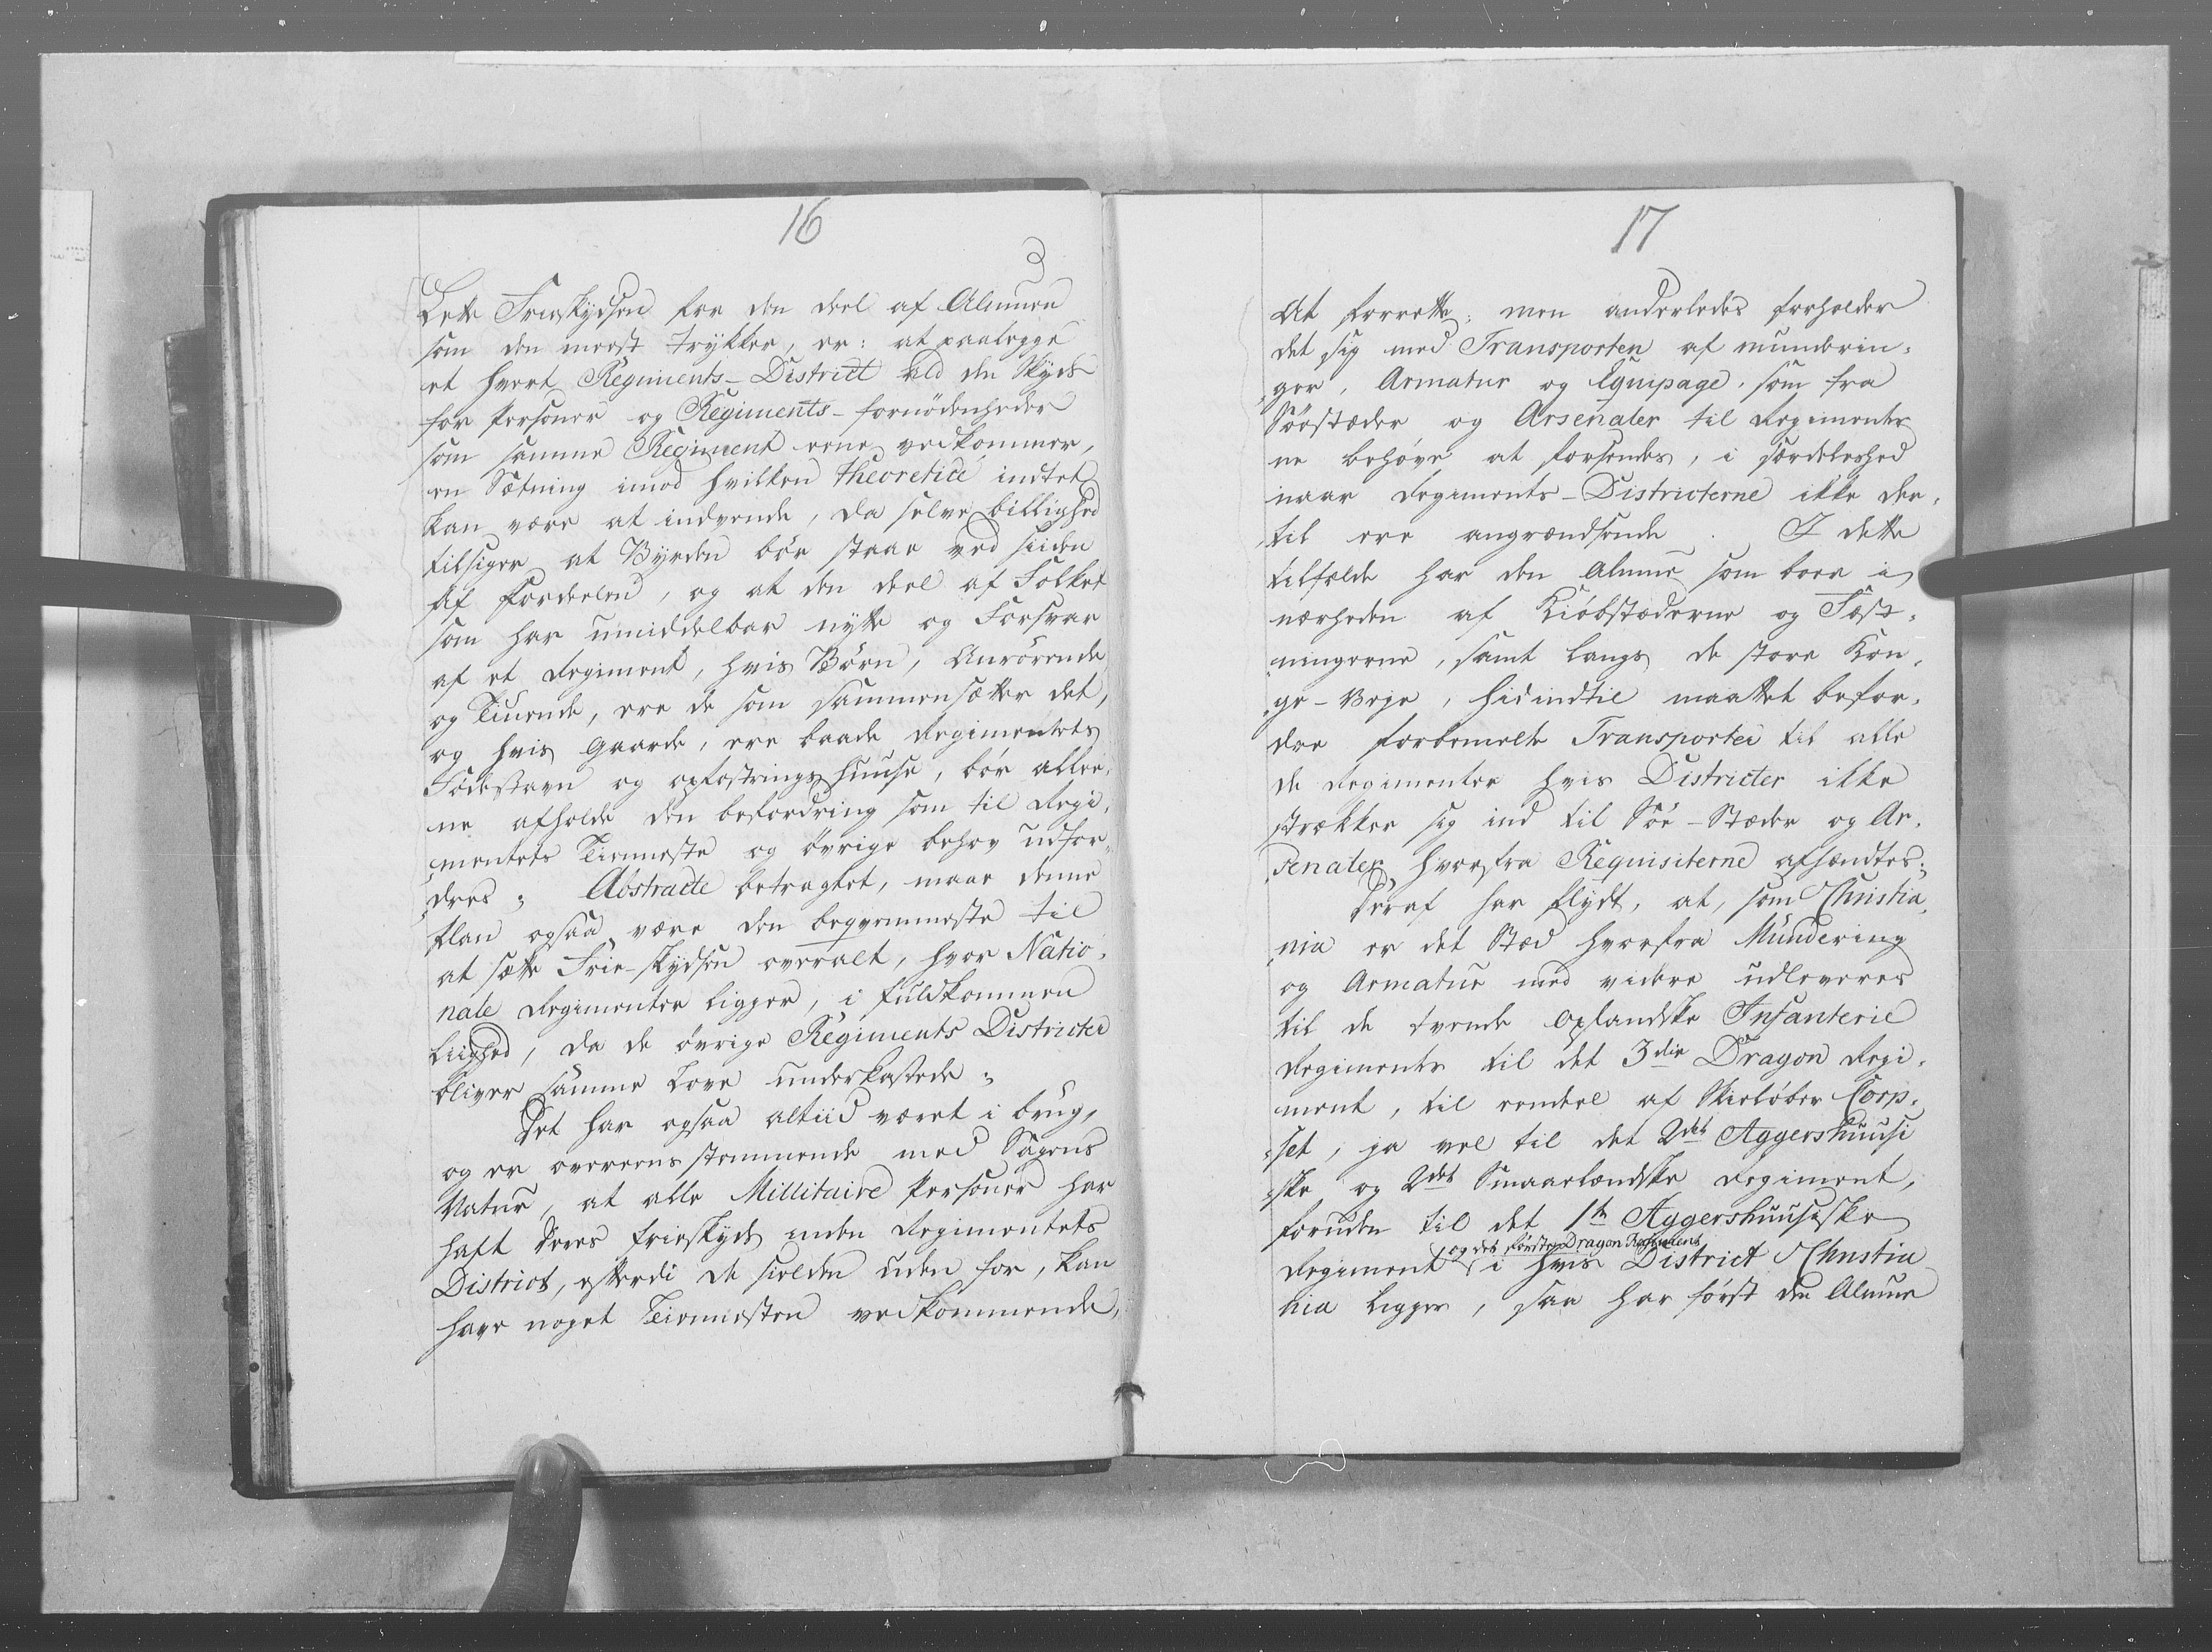 16
3
Lette Frieskydsen for den deel af Almuen
som den meest trykker, er: at paalegge
et hvert Regiments-District ald den Skyds
for Personer og Regiments-fornödenheder
som samme Regiment eene vedkommer,
en Sætning imod hvilken theoretice indtet
kan være at indvende, da selve billighed
tilsiger at Byrden bör staae ved siiden
af fordeelen, og at den deel af Folket
som har umiddelbar nytte og Forsvar
af et Regiment, hvis Börn, Anrörende
og Tiunde, ere de som sammensætter det,
og hvis Gaarde, ere baade Regimentets
Födestavn og opfostrings huuse, bör allee„
ne afholde den befordring som til Regi„
„mentets Tienneste og övrige behov udfor„
„dres; Abstracte betragtet, maae denne
plan ogsaa være den beqvemmeste til
at sætte Frie-skydsen overalt, hvor Natio„
nale Regimenter ligger, i fuldkommen
Liighed, da de övrige Regiments Districter
bliver samme Love underkastede;
Det har ogsaa altiid været i brug,
og er overeens stemmende med Sagens
Natur, at alle Millitaire Personer har
haft deres frieskyds inden Regimentets
District, efterdi de sielden uden for, kan
have noget Tiennesten vedkommende,
17
At forrette; men anderledes forholder
det sig med Transporten af munderin„
„ger, Armatur og Equipage, som fra
Söestæder og Arsenaler til Regimenter
ne behöve at forsendes, i særdeleshed
naar Regiments-Districterne ikke der„
„til ere angrændsende. I dette
tilfælde har den Almue som boer i
nærheden af Kiöbstæderne og Fæst„
„ningerne, samt langs de store Kon„
„ge-Veje, hidindtil maattet befor„
dre forbemelte Transporter til alle
de Regimenter hvis Districter ikke
strækker sig ind til Söe-Stæder og Ar„
„senaler, hvorfra Requisiterne afhændtes;
Deraf har flydt, at, som Christia„
„nia er det Stæd hvorfra Mundering
og Armatur med videre udleveres
til de tvende Oplandske Infanterie
Regimenter til det 3die Dragon Regi„
ment, til eendeel af Skielöber Corp„
„set, ja vel til det 2det Aggershuusi
„ske og 2det Smaalændske Regiment,
foruden til det 1te Aggershuusiske
og det förste Dragon Regiment
Regiment i hvis District Christia
nia ligger, saa har först den Almue